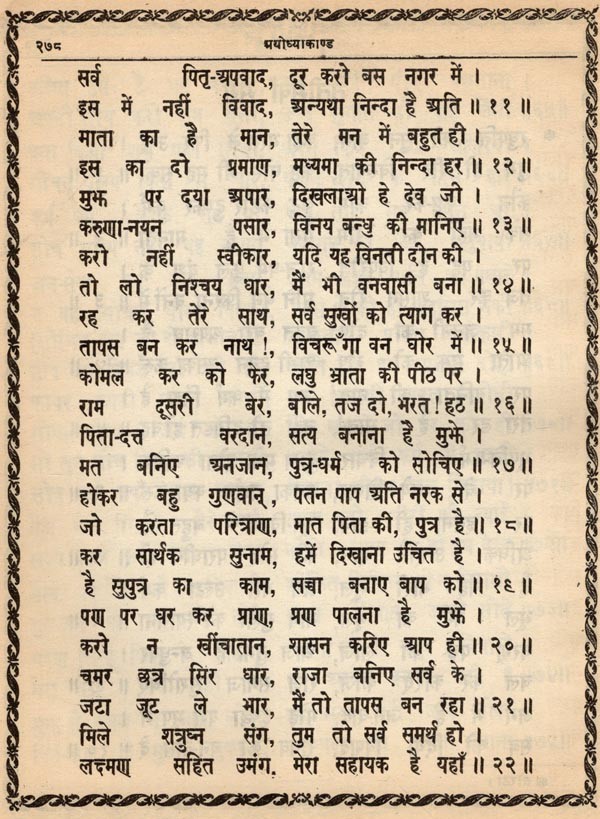 २७८ अयोध्याकाण्ड
सर्व पितृ-अपवाद, दूर करो बस नगर में ।
इस में नहीं विवाद, अन्यथा निन्दा है अति ॥ ११ ॥
माता का है मान, तेरे मन में बहुत ही ।
इस का दो प्रमाण, मध्यमा की निन्दा हर ॥ १२ ॥
मुझ पर दया अपार, दिखलाओ हे देव जी ।
करुणा-नयन पसार, विनय बन्धु की मानिए ॥ १३ ॥
करो नहीं स्वीकार, यदि यह विनती दीन की ।
तो लो निश्चय धार, मैं भी वनवासी बना ॥ १४ ॥
रह कर तेरे साथ, सर्व सुखों को त्याग कर ।
तापस बन कर नाथ !, विचरूँगा वन घोर में ॥ १५ ॥
कोमल कर को फेर, लघु भ्राता की पीठ पर ।
राम दूसरी बेर, बोले, तज दो, भरत ! हठ ॥ १६ ॥
पिता-दत्त वरदान, सत्य बनाना है मुझे ।
मत बनिए अनजान, पुत्र-धर्म को सोचिए ॥ १७ ॥
होकर बहु गुणवान्, पतन पाप अति नरक से ।
जो करता परित्राण, मात पिता की, पुत्र है ॥ १८ ॥
कर सार्थक सुनाम, हमें दिखाना उचित है
है सुपुत्र का काम, सच्चा बनाए बाप को ॥ १९ ॥
पण पर धर कर प्राण, प्रण पालना है मुझे ।
करो न खींचातान, शासन करिए आप ही ॥ २० ॥
चमर छत्र सिर धार, राजा बनिए सर्व के ।
जटा जूट ले भार, मैं तो तापस बन रहा ॥ २१ ॥
मिले शत्रुघ्न संग, तुम तो सर्व समर्थ हो ।
लक्ष्मण सहित उमंग, मेरा सहायक है यहाँ ॥ २२ ॥